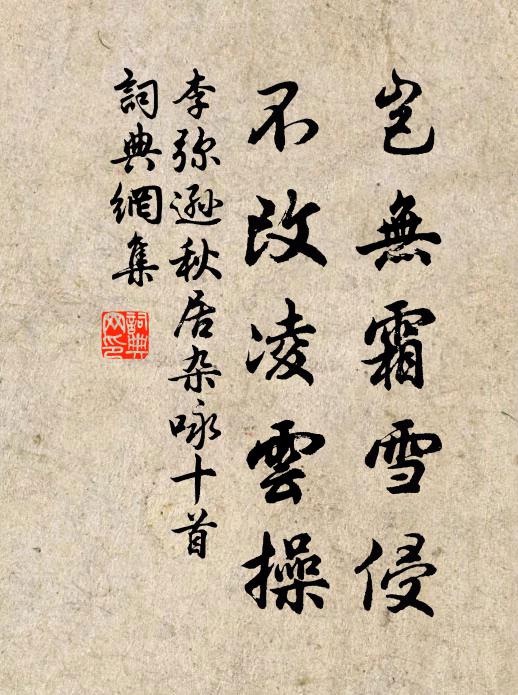 岂無霜雪侵
不改凌雲操
李弥遜秋居杂咏十首
詞典網集
詞典
网印